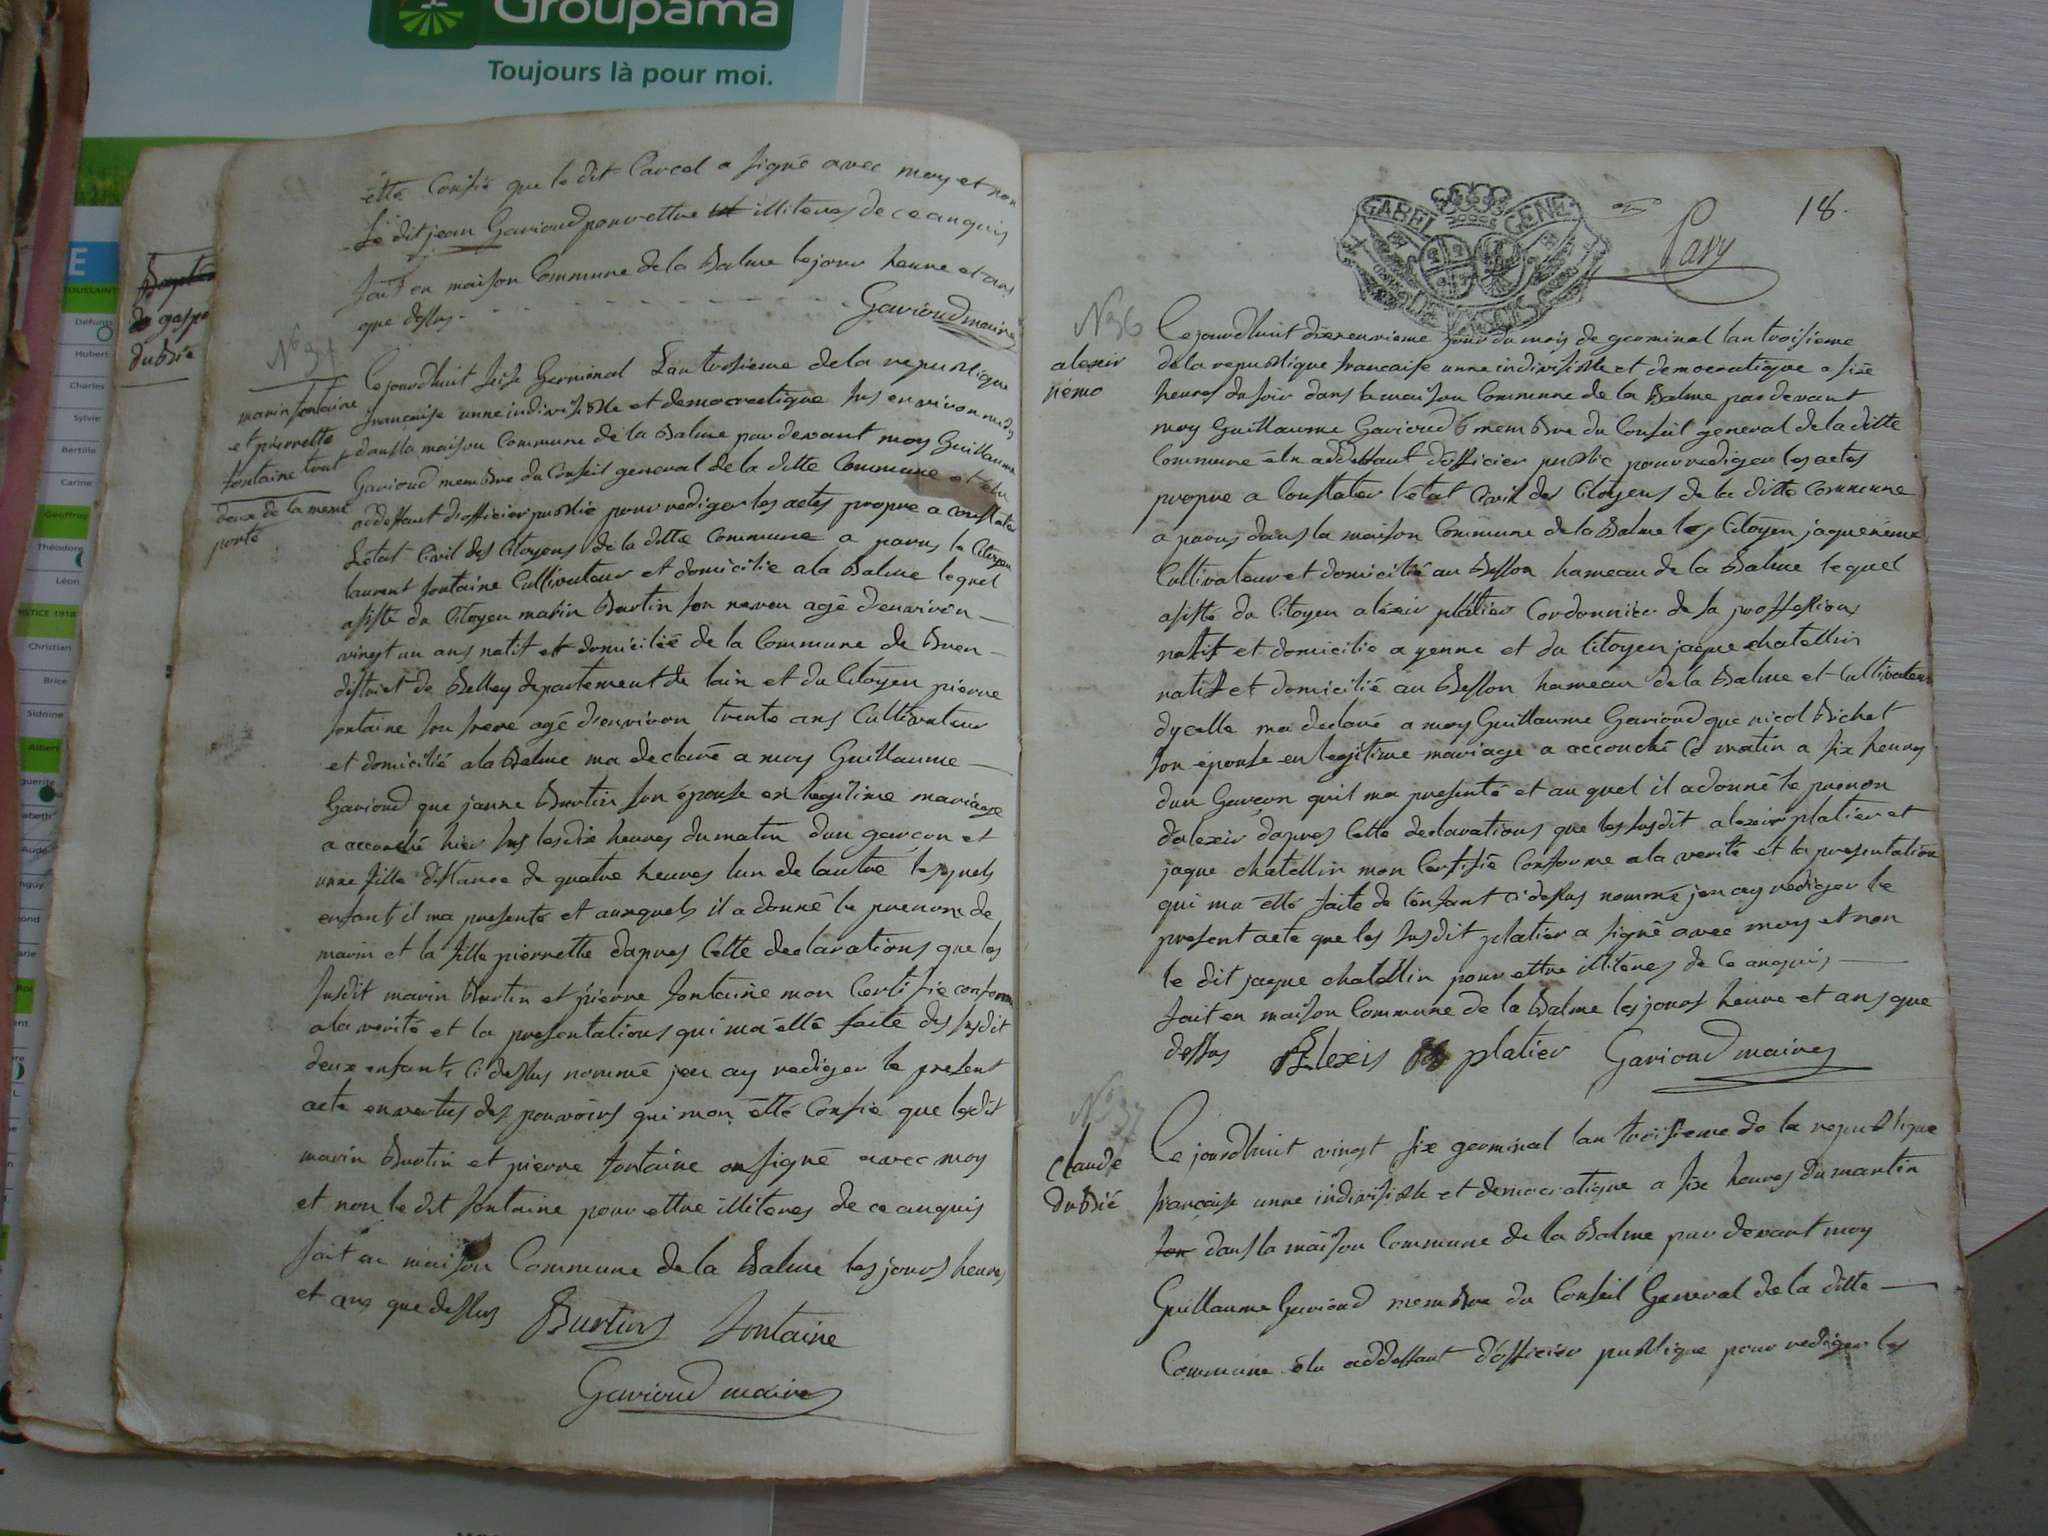 Groupama
Toujours là pour moi.
E
TOUSSAINT
Défunts
Hubert
Charles
Sylvie
Bertille
Carine
Geoffroy
Théodore
Léon
ISTICE 1918
Christian
Brice
Sidoine
Albert
été Confié que le dit Carcel a signé avec moy et non
Le dit jean Garioud pour ettre illiteres de ce anquis
fait en maison Commune de la Balme le jour heure et ans
que dessus
Garioud maire
dubié
marin fontaine
et pierrette
fontaine tout
deux de la meme
porté
Ce jourdhuit seise Germinal Lan troisieme de la republique
francaise unne indivisible et democratique sus environ midy
dans la maison Commune de la Balme par devant moy Guillaume
Garioud membre du Conseil general de la ditte Commune et élu
addeffaut d'officier public pour rediger les actes propre a constater
Letat Civil des Citoyens de la ditte Commune a parus le Citoyen
laurent fontaine Cultivateur et domicilié a la Balme lequel
assiste du Citoyen marin Burtin son neveu agé denviron
vingt un ans natif et domicilié de la Commune de Bren
district de Belley departement de lain et du Citoyen pierre
fontaine son frere agé denviron trente ans Cultivateur
et domicilié a la Balme ma declaré a moy Guillaume
Garioud que janne Burtin son épouse en legitime mariage
a accouché hier sus les dix heures du matin dun garçon et
unne fille distance de quatre heures lun de lautre lesquels
enfant il ma presenté et auxquels il a donné le prenom de
marin et la fille pierrette dapres Cette declarations que les
susdit marin Burtin et pierre fontaine mon Certifie conforme
a la verité et la presentations qui ma été faite des susdit
deux enfants Ci dessus nommé jen ay rediger le present
acte en vertus des pouvoirs qui mon été Confié que lesdit
marin Burtin et pierre fontaine on signé avec moy
et non le dit fontaine pour ettre illiteres de ce anquis
fait en maison Commune de la Balme les jours heures
et ans que dessus Burtin fontaine
Garioud maire
GABEL GENE
Pavy
18.
No 36
alexir
nemo
Ce jourdhuit dixneuvieme jour du mois de germinal lan troisieme
de la republique francaise unne indivisible et democratique a sixe
heures du soir dans la maison Commune de la Balme par devant
moy Guillaume Garioud membre du Conseil general de la ditte
Commune élu addeffaut d'officier public pour rediger les actes
propre a Constater l'état Civil des Citoyens de la ditte commune
a parus dans la maison Commune de la Balme les Citoyen jaque nemoz
Cultivateur et domicilié au Besson hameau de la Balme lequel
assisté du Citoyen alexir platier Cordonnier de sa proffession
natif et domicilié a yenne et du Citoyen jaque chatellin
natif et domicilié au Besson hameau de la Balme et Cultivateur
dycelle ma declaré a moy Guillaume Garioud que nicol Bichet
son épouse en legitime mariage a accouché Ce matin a six heures
dun Garçon quil ma presenté et au quel il a donné le prenon
dalexir dapres Cette declarations que les susdit alexir platier et
jaque chatellin mon Certifié Conforme a la verité et la presentation
qui ma été faite de l'enfant Ci dessus nommé jen ay rediger le
present acte que les susdit platier a signé avec moy et non
le dit jaque chatellin pour ettre illiteres de Ce anquis
fait en maison Commune de la Balme les jours heure et ans que
dessus Alexis platier Garioud maire
No 37
Claude
dubié
Ce jourdhuit vingt six germinal lan troisieme de la republique
francaise unne indivisible et democratique a six heures du mantin
dans la maison Commune de la Balme par devant moy
Guillaume Garioud membre du Conseil General de la ditte
Commune élu addeffaut d'officier publique pour rediger les